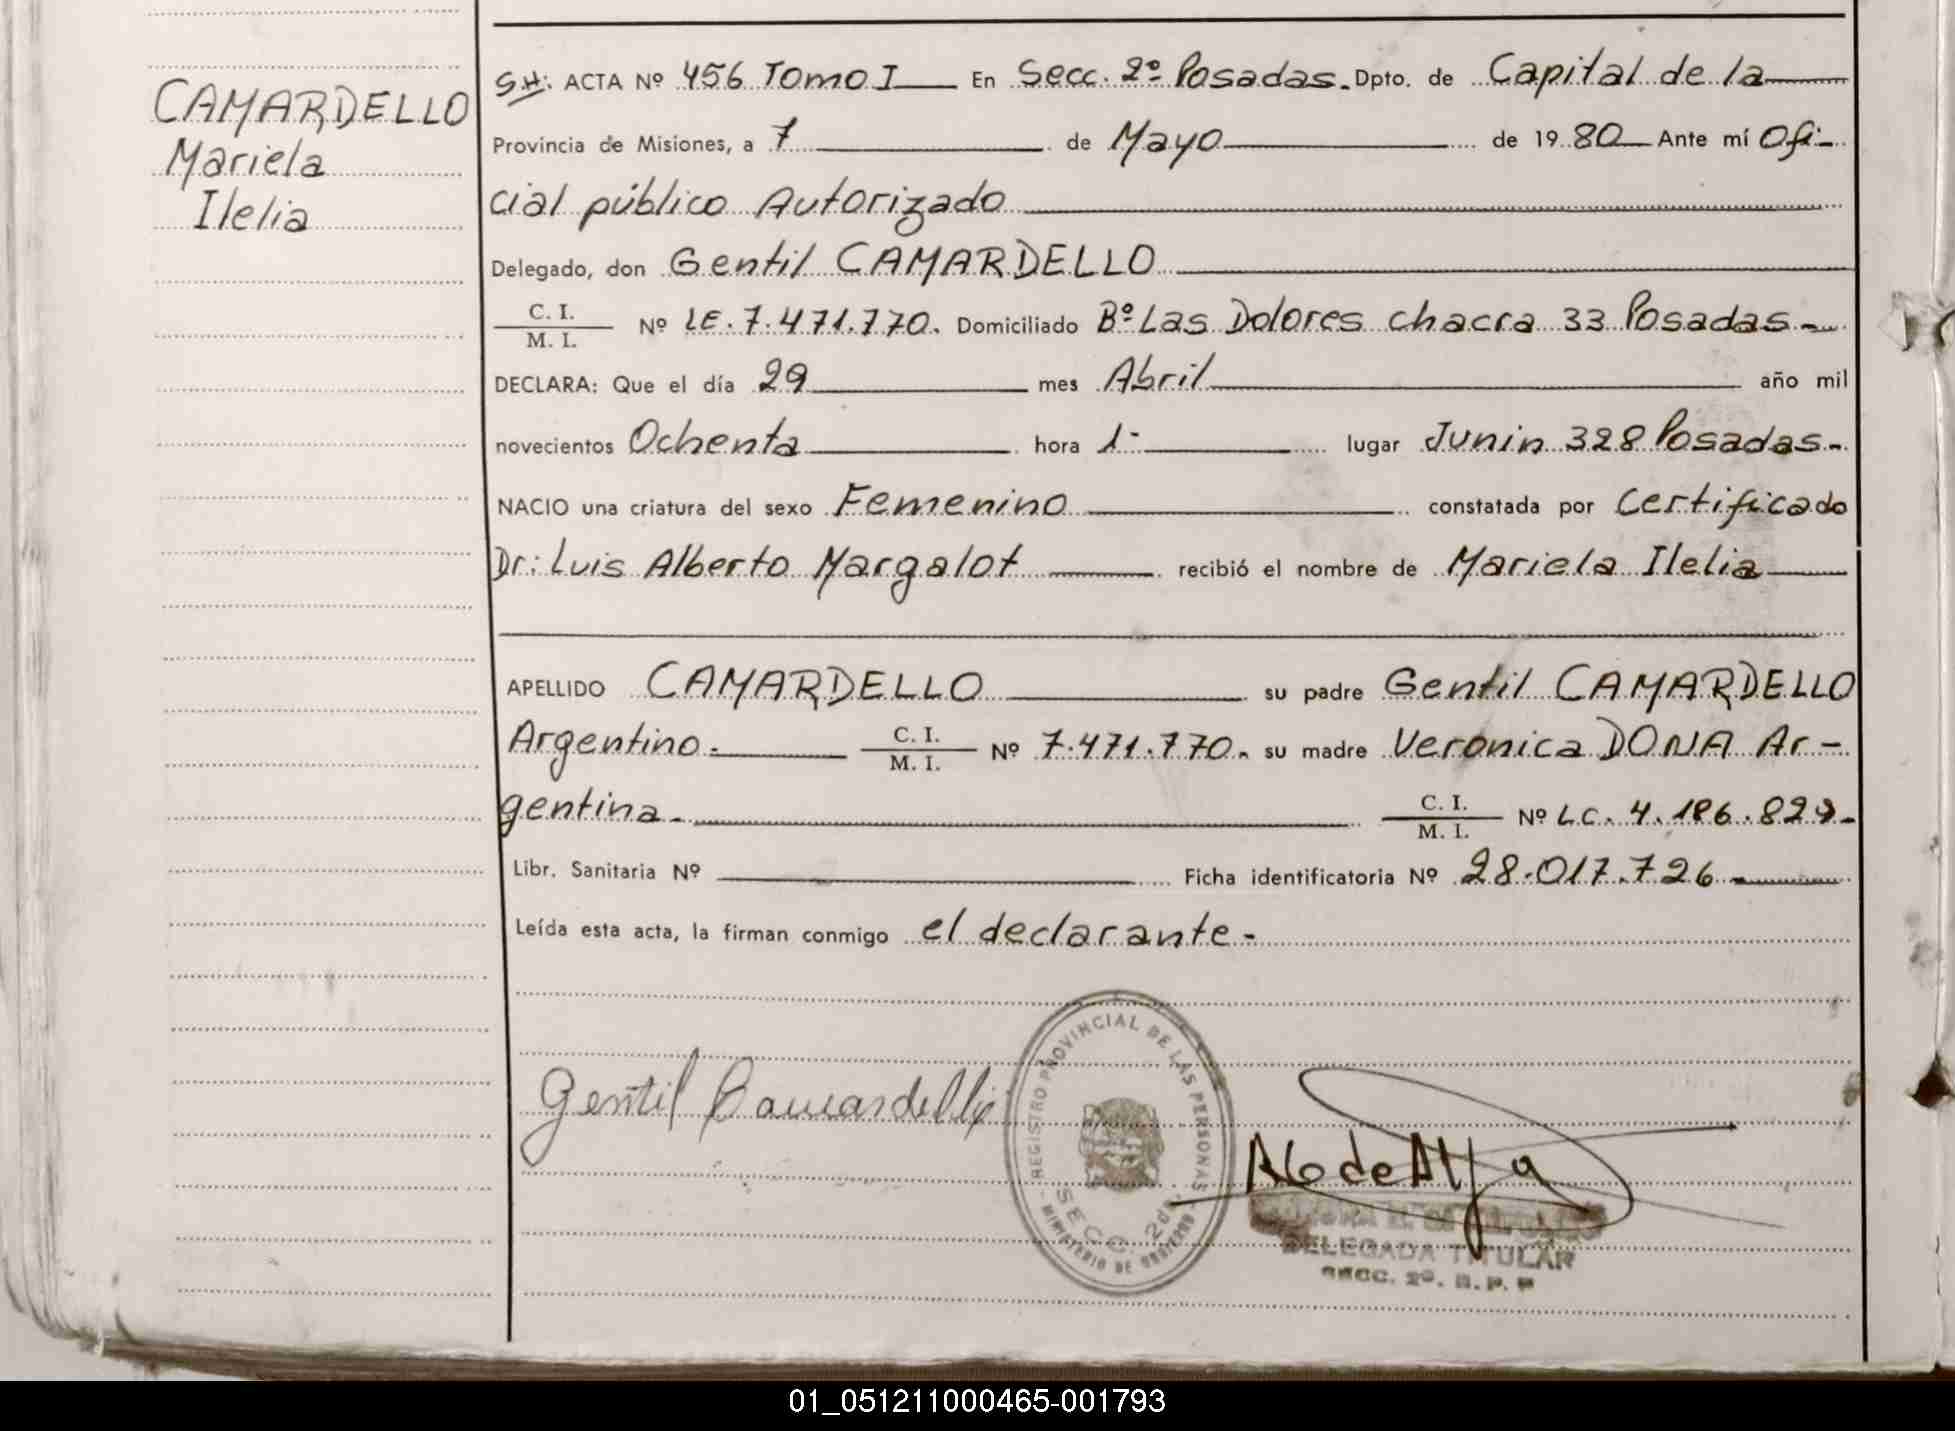 CAMARDELLO
Mariela
Ilelia
S.H: ACTA Nº 456 Tomo I En Secc. 2º Posadas. Dpto. de Capital de la
Provincia de Misiones, a 7 de Mayo de 1980 Ante mí Ofi-
cial público Autorizado
Delegado, don Gentil CAMARDELLO
C. I.
M. I. Nº LE. 7.471.770. Domiciliado Bº Las Dolores chacra 33 Posadas -
DECLARA: Que el día 29 mes Abril año mil
novecientos Ochenta hora 1- lugar Junin 328 Posadas -
NACIO una criatura del sexo Femenino constatada por Certificado
Dr: Luis Alberto Margalot recibió el nombre de Mariela Ilelia
APELLIDO CAMARDELLO su padre Gentil CAMARDELLO
Argentino. C. I.
M. I. Nº 7.471.770. su madre Veronica DONA Ar-
gentina. C. I.
M. I. Nº LC. 4.186.829.
Libr. Sanitaria Nº Ficha identificatoria Nº 28.017.726
Leída esta acta, la firman conmigo el declarante -
Gentil Camardello
REGISTRO PROVINCIAL DE LAS PERSONAS
SECC. 2da
MINISTERIO DE GOBIERNO
DELEGADA TITULAR
SECC. 2º. R. P. P
01_051211000465-001793